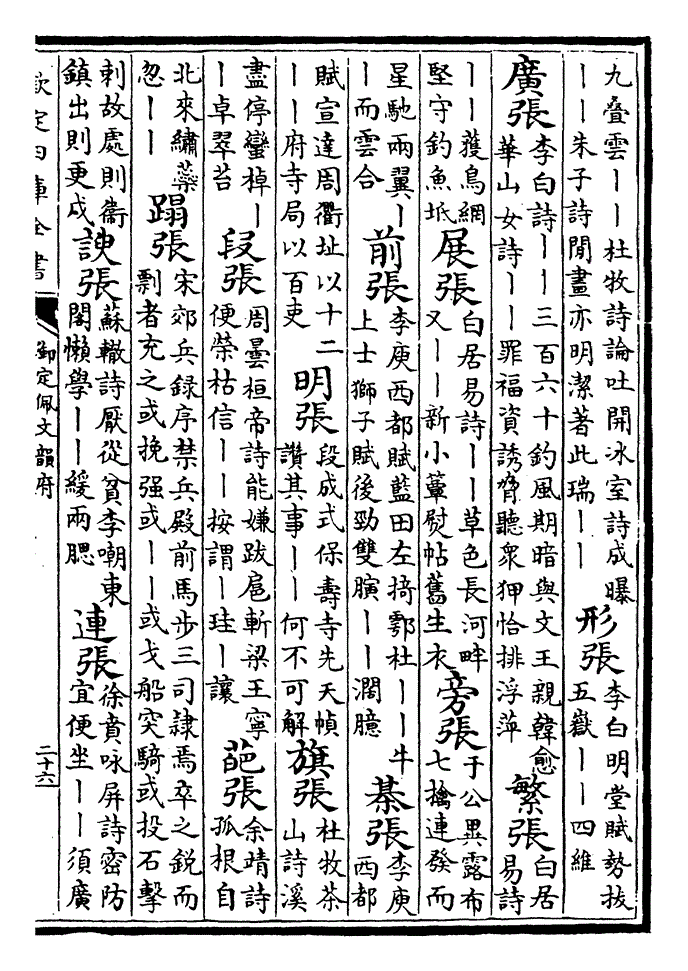 九叠雲丨丨杜牧詩論吐開冰室詩成曝
丨丨朱子詩閒晝亦明潔著此瑞丨丨
形張
李白明堂賦勢拔
五嶽丨丨四維
廣張
李白詩丨丨三百六十釣風期暗與文王親韓愈
華山女詩丨丨罪福資誘脅聽衆狎恰排浮萍
繁張
白居
易詩
丨丨獲鳥網
堅守釣魚坻
展張
白居易詩丨丨草色長河畔
又丨丨新小簟熨帖舊生衣
旁張
于公異露布
七擒連發而
星馳兩翼丨
丨而雲合
前張
李庾西都賦藍田左掎鄠杜丨丨牛
上士獅子賦後勁雙丨丨濶臆
棊張
李庾
西都
賦宣達周衢址以十二
丨丨府寺局以百吏
明張
段成式保壽寺先天幀
讚其事丨丨何不可解
旗張
杜牧茶
山詩溪
盡停蠻棹丨
丨卓翠苔
段張
周曇桓帝詩能嫌跋扈斬梁王寧
便榮枯信丨丨按謂丨珪丨讓
葩張
余靖詩
孤根自
北來繡蘂
忽丨丨
蹋張
宋郊兵録序禁兵殿前馬步三司隷焉卒之鋭而
剽者充之或挽强或丨丨或戈船突騎或投石擊
刺故處則衞
鎮出則更戍
諛張
蘇轍詩厭從貧李嘲東
閣懶學丨丨緩兩腮
連張
徐賁咏屏詩密防
宜便坐丨丨須廣
欽定四庫全書
御定佩文韻府
二十六